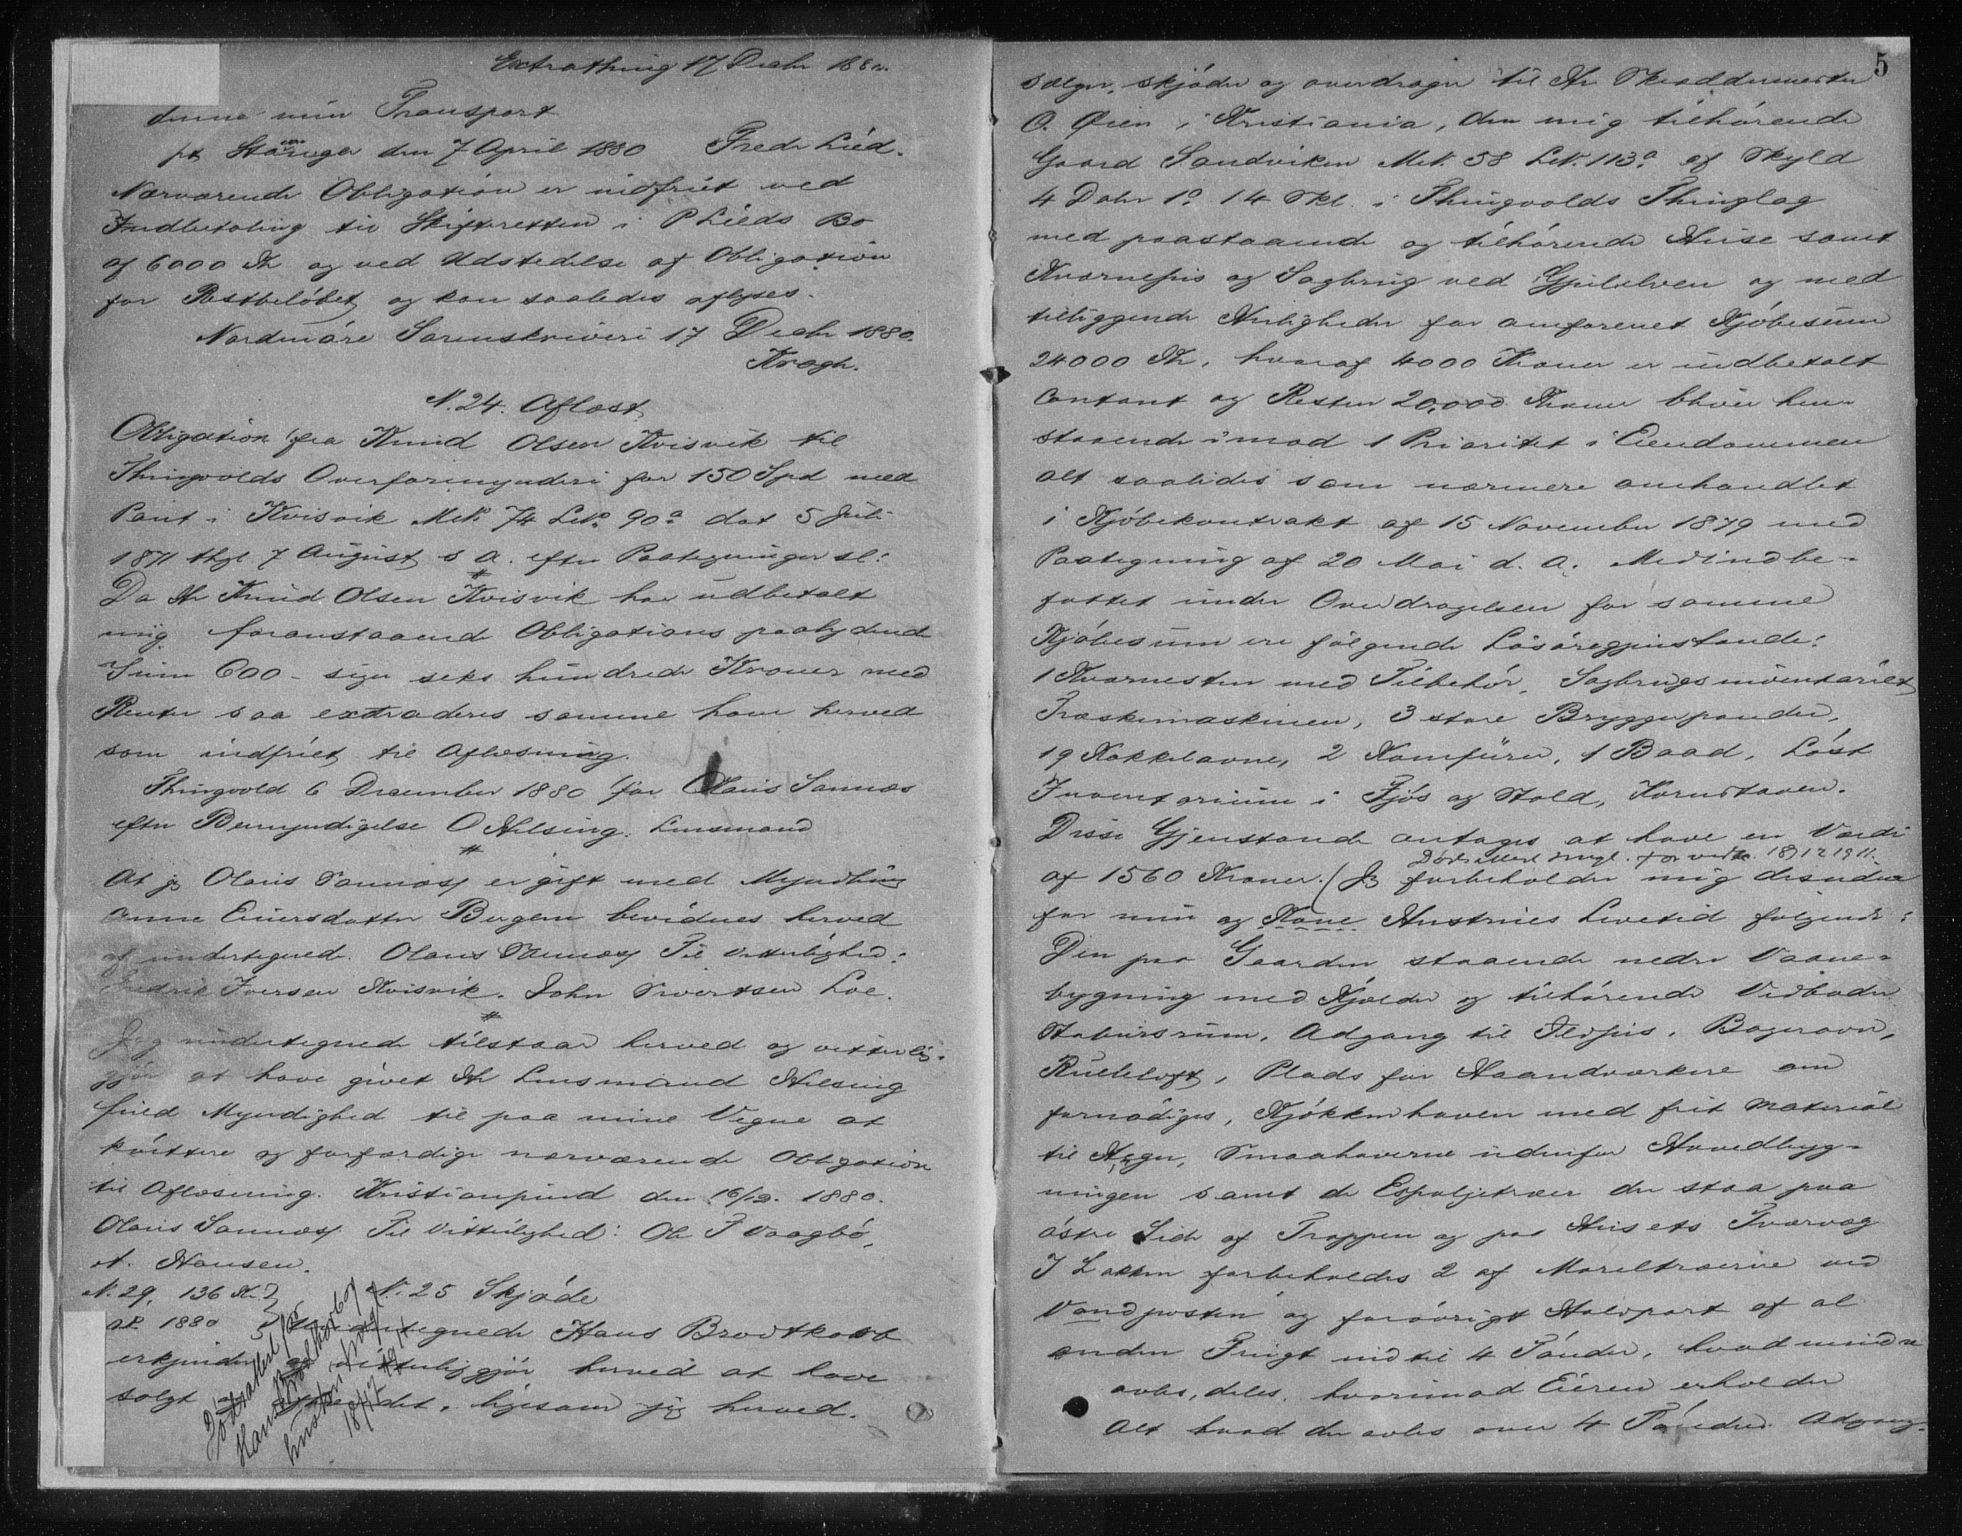 Extrathing 17 Decbr 1880.
denne min Transport
pt Stavanger den 7 April 1880 Fredr Lied.
Nærværende Obligation er indfriet ved
Indbetaling til Skifteretten i P Lieds Bo
af 6000 Kr og ved Udstedelse af Obligation
for Restbeløbet og kan saaledes aflyses.
Nordmøre Sorenskriveri 17 Decbr 1880.
Krogh.
N. 24. Aflæst
Obligation fra Knud Olsen Kvisvik til
Thingvolds Overformynderi for 150 Spd med
Pant i Kvisvik Mtr. 74 Lr. 90a dat 5 Juli
1871 thgl 7 August s. a. efter Paategninger sl:
Da Hr Knud Olsen Kvisvik har udbetalt
mig foranstaaende Obligations paalydende
Sum 600 - siger seks hundrede Kroner med
Renter saa extraderes samme ham herved
som indfriet til Aflæsning.
Thingvold 6 December 1880 for Olaus Sannæs
efter Bemyndigelse O Hilsing. Lensmand
At jeg Olaus Sannæs er gift med Myndling
Anne Einersdatter Bergem bevidnes herved
af undertegnede. Olaus Sannæs Til Vitterlighed:
Fredrik Iversen Kvisvik. John Sivertsen Loe.
Jeg undertegnede tilstaar herved og vitterlig-
gjør at have givet Hr Lensmand Hilsing
fuld Myndighed til paa mine Vegne at
kvittere og forfærdige nærværende Obligation
til Aflæsning. Kristiansund den 16/12. 1880.
Olaus Sannæs Til Vitterlighed: Ole J Vaagbø,
A. Hansen.
N. 29. 136 Kr
af 1880
N. 25 Skjøde
Undertegnede Hans Brodtkorb
erkjender og vitterliggjør herved at have
solgt, ligesom jeg herved.
Dødsattest for
Hans Brodtkorb og
hustru tingl
18/12 1911
5
sælger, skjøder og overdrager til Hr Skræddermester
O. Øien i Kristiania, den mig tilhørende
Gaard Sandviken Mtr. 58 Lr. 113a af Skyld
4 Daler 1 o 14 Skl. i Thingvolds Thinglag
med paastaaende og tilhørende Huse samt
Kværnehus og Sagbrug ved Gjulelven og med
tilliggende Herligheder for omforenet Kjøbesum
24000 Kr. hvoraf 4000 Kroner er indbetalt
Contant og Resten 20,000 Kroner bliver hen-
staaende imod 1 Prioritet i Eiendommen
alt saaledes som nærmere omhandlet
i Kjøbekontrakt af 15 November 1879 med
Paategning af 20 Mai d. A. Medindbe-
fattet under Overdragelsen for samme
Kjøbesum ere følgende Løsøregjenstande:
1 Kværnesten med Tilbehør, Sagbrugsinventariet
Træskemaskinen, 3 store Bryggepander,
19 Kakkelovne, 2 Komfurer, 1 Baad, Løst
Inventarium i Fjøs og Stald, Kornstaven.
Disse Gjenstande antages at have en Værdi
Dødsattest tingl. 18/12 1911.
af 1560 Kroner. Jeg forbeholder mig desuden
for min og Kone Hustrues Levetid følgende:
Den paa Gaarden staaende nedre Vaane-
bygning med Kjælder og tilhørende Vedboder
Stabursrum, Adgang til Ildhus, Bagerovn,
Rulleloft, Plads for Haandværkere om
fornødiges, Kjøkkenhaven med frit Material
til Hegn, Smaahaverne udenfor Hovedbyg-
ningen samt de Espaljetræer der staa paa
østre Side af Trappen og paa Husets Tværvæg
I Lakken forbeholdes 2 af Moreltræerne ved
Vandposten og forøvrigt Halvpart af al
anden Frugt indtil 4 Tønder, hvad mindre
avles, deles, hvorimod Eieren erholder
Alt hvad der avles over 4 Tønder. Adgang